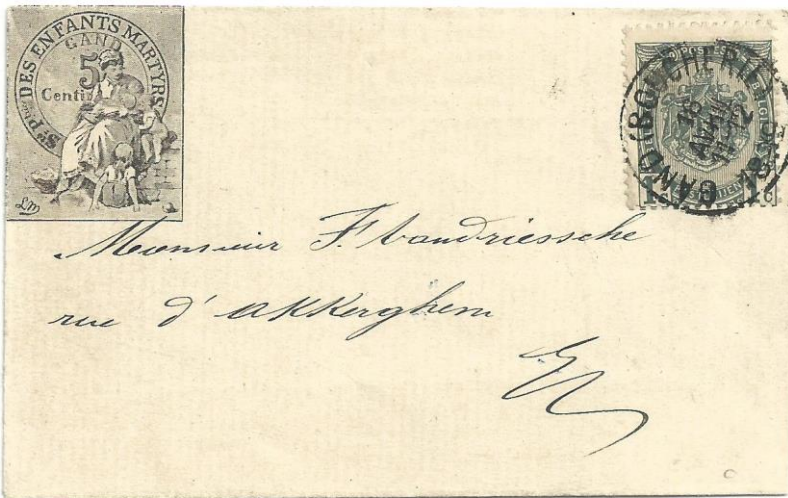 Sté Ptrice DES ENFANTS MARTYRS
GAND
5
Centi
LM
POSTES
GAND (BOUCHERIE)
16
AVRIL
Monsieur F. Vandriessche
rue d'Akkerghem
EV